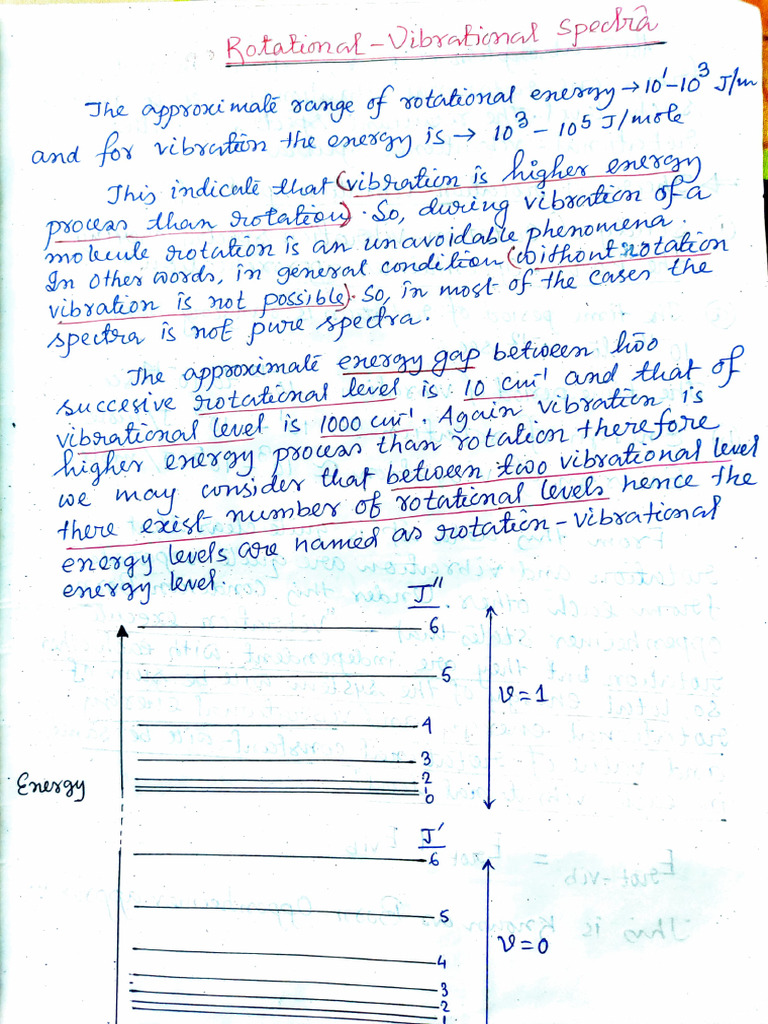 Rotational-Vibrational Spectra
The approximate range of rotational energy → 10¹-10³ J/m
and for vibration the energy is → 10³ - 10⁵ J/mole
This indicate that (vibration is higher energy
process than rotation). So, during vibration of a
molecule rotation is an unavoidable phenomena.
In other words, in general condition (without rotation
vibration is not possible). So, in most of the cases the
spectra is not pure spectra.
The approximate energy gap between two
succesive rotational level is 10 cm⁻¹ and that of
vibrational level is 1000 cm⁻¹ Again vibration is
higher energy process than rotation therefore
we may consider that between two vibrational level
there exist number of rotational levels hence the
energy levels are named as rotation-vibrational
energy level.
J''
6
5
v=1
4
3
2
1
0
Energy
J'
6
5
v=0
4
3
2
1